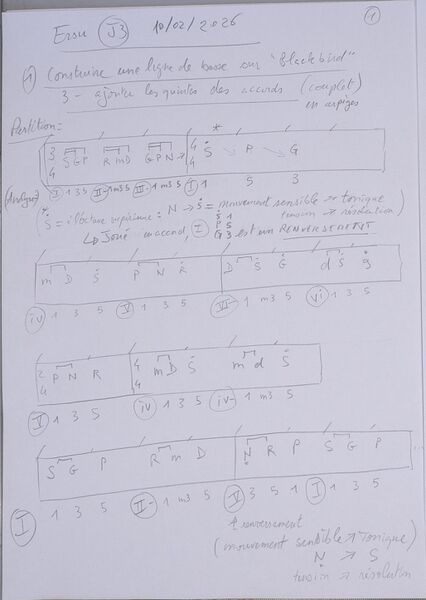 Ersu J3 10/02/2026
1
1 Construire une ligne de basse sur "Blackbird"
3 - ajouter les quintes des accords (couplet)
en arpèges
Partition:
*
3 4 S G P R m D G P N → 4 4 Ṡ P G
(Analyse) I 1 3 5 II- 1 m3 5 1 m3 5 I 1 5 3
* Ṡ = à l'octave supérieure : N → Ṡ = mouvement sensible → tonique
tension → résolution
↳ Joué en accord, I Ṡ 1 P 5 G 3 est un RENVERSEMENT
m D Ṡ P N Ṙ D Ṡ Ġ d Ṡ
IV 1 3 5 V 1 3 5 VI- 1 m3 5 vi 1 3 5
2 4 P N R 4 4 m D Ṡ m d Ṡ
V 1 3 5 IV 1 3 5 IV- 1 m3 5
S G P R m D N R P S G P ...
I 1 3 5 II- 1 m3 5 V 3 5 1 I 1 3 5
↑ renversement
(mouvement sensible → Tonique)
N → S
tension → résolution